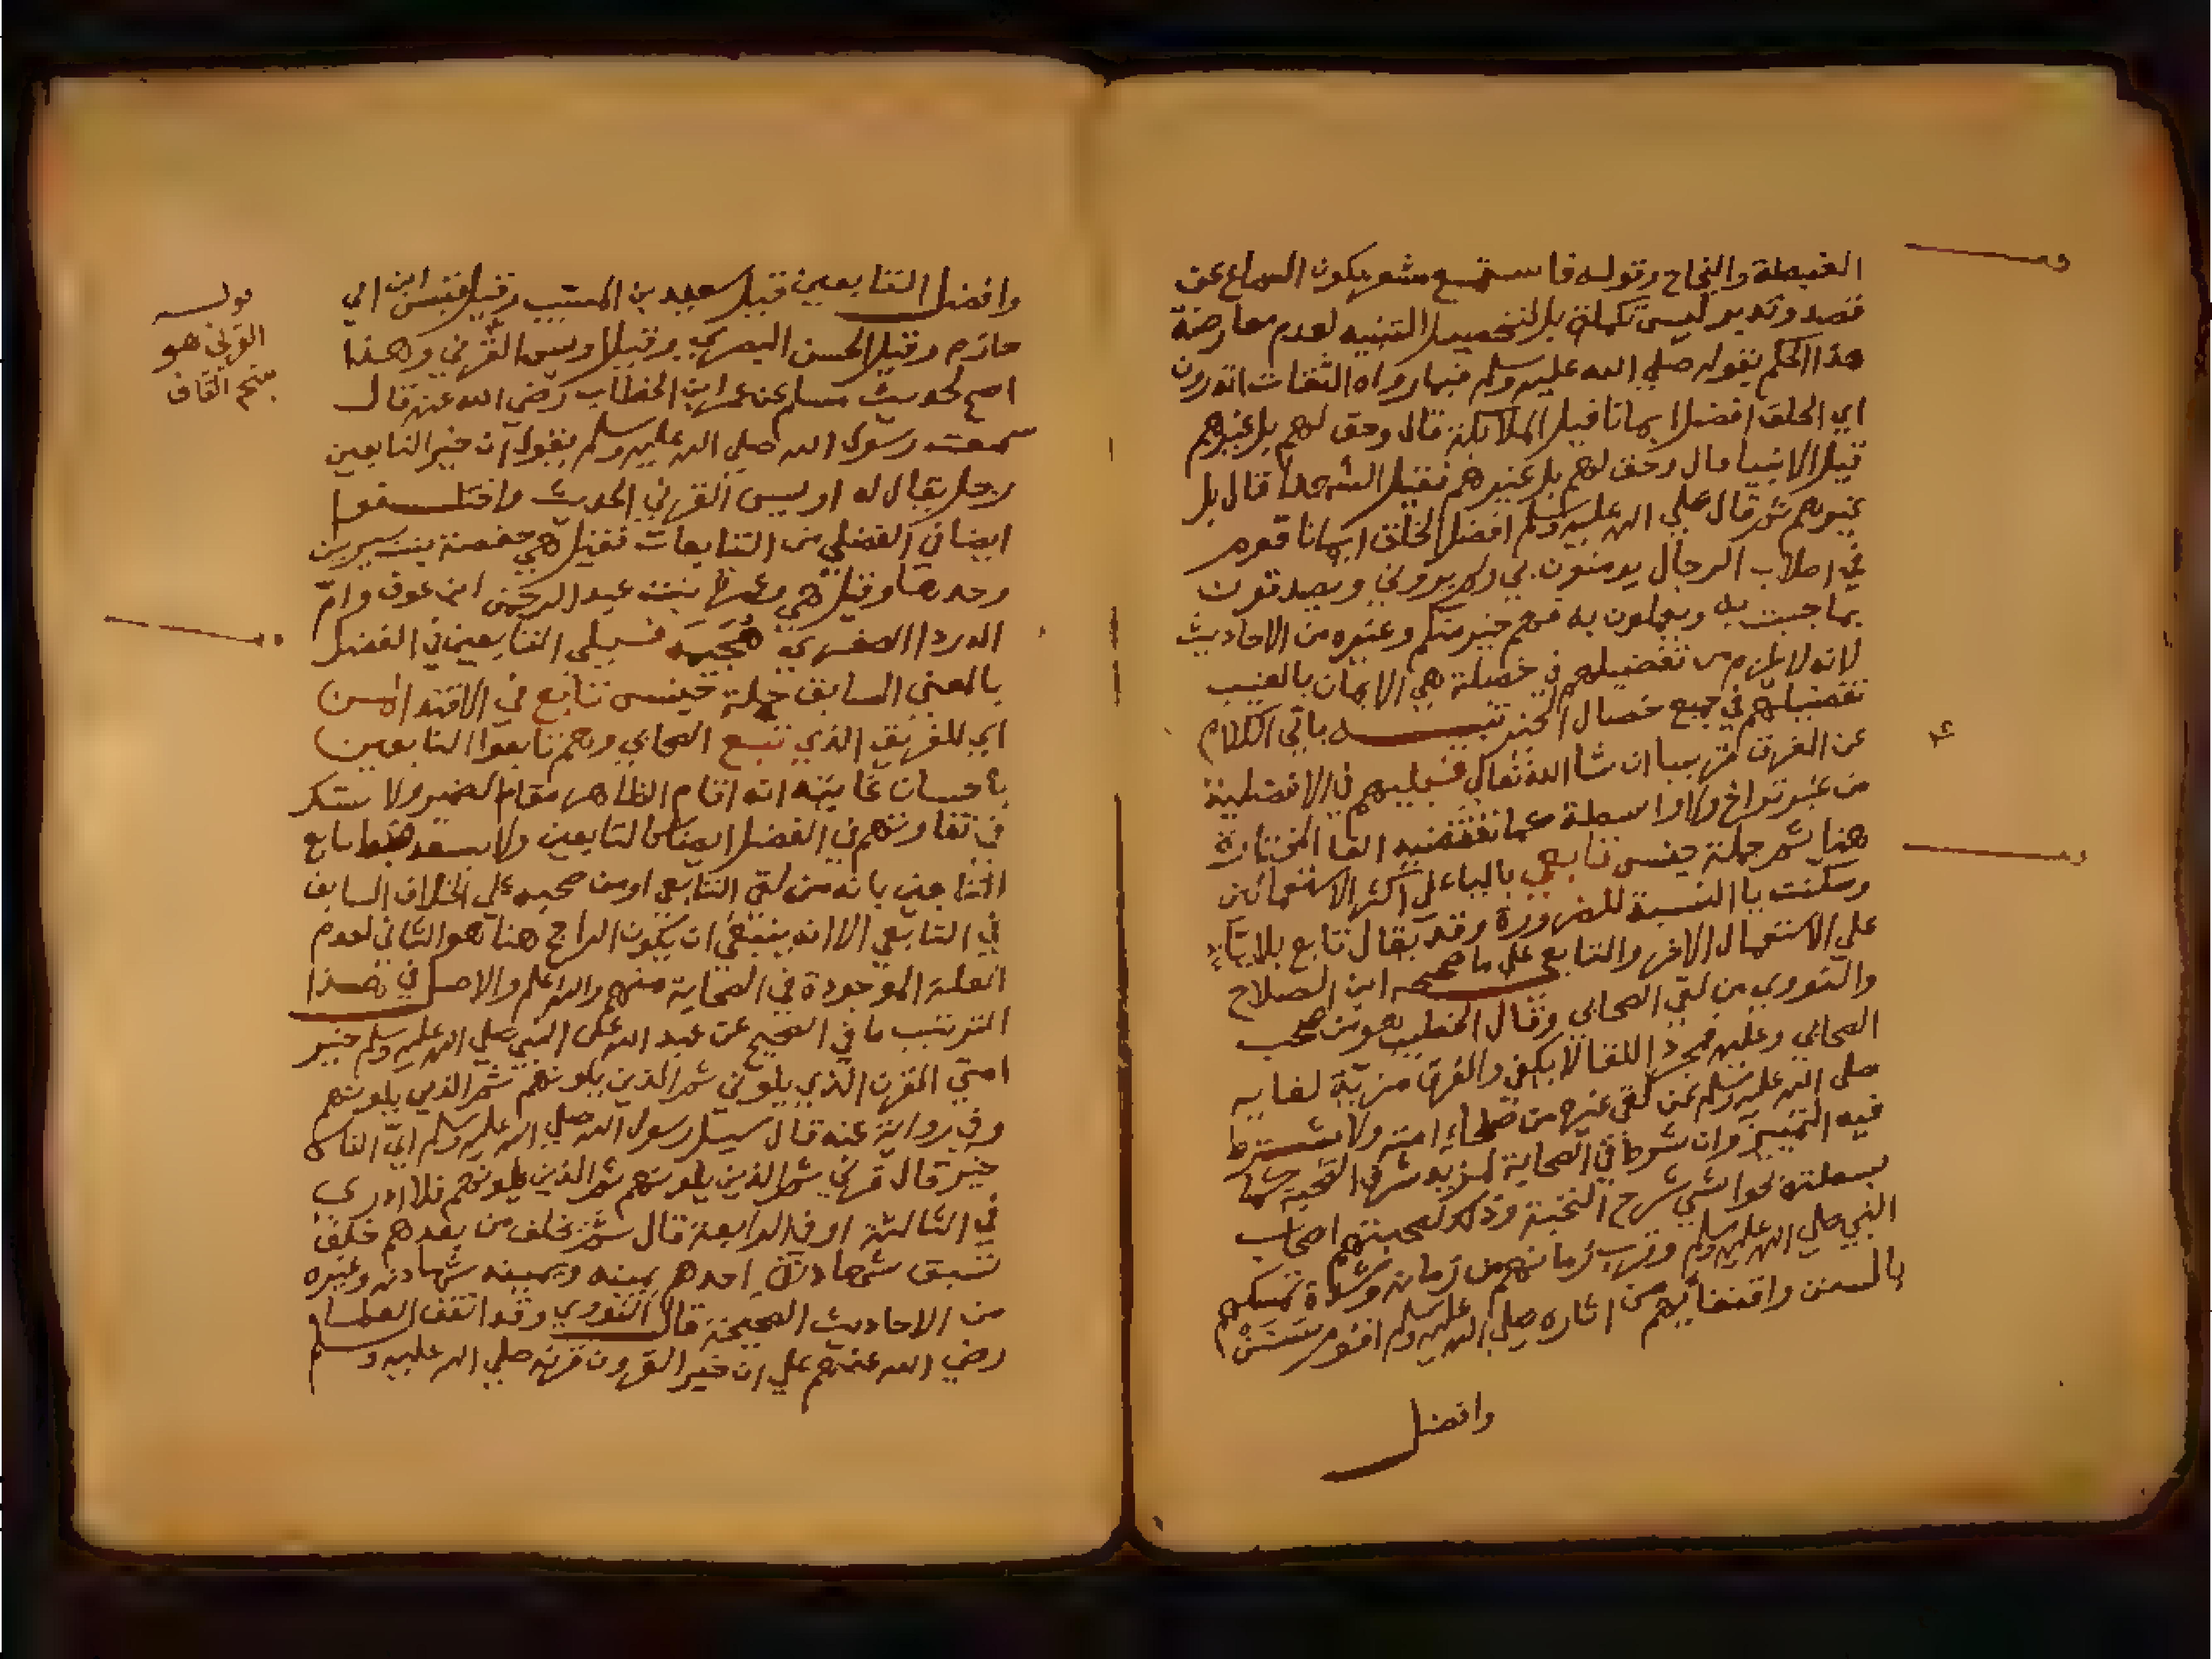 الغبطة والنجاح وقوله فاستمع مشعر بكون السماع عن
قصد وتدبر ليس تكملة بل لتحصيل التنبيه لعدم معارضة
هذا الحكم بقوله صلي الله عليه وسلم فيما رواه الثقات اتدرون
اي الخلق افضل ايمانا قيل الملائكة قال وحق لهم بل غيرهم
قيل الانبيا قال وحق لهم بل غيرهم فقيل الشهدا قال بل
غيرهم ثم قال صلي الله عليه وسلم افضل الخلق ايمانا قوم
في اصلاب الرجال يومنون بي ولم يروني ويصدقون
بما جيت به ويعملون به فهم خير منكم وغيره من الاحاديث
لانه لا يلزم من تفضيلهم في خصلة هي الايمان بالغيب
تفضيلهم في جميع خصال الخير تنبيه ياتي الكلام
عن القرن قريبا ان شا الله تعالي فيليهم في الافضلية
من غير تراخ ولا واسطة كما تقتضيه الفا المختارة
هنا ثم جملة جنس تابعي بالياء علي اكثر الاستعمالين
وسكنت يا النسبة للضرورة وقد يقال تابع بلا ياء
علي الاستعمال الاخر والتابع علي ما صححه ابن الصلاح
والنووي من لقي الصحابي وقال الخطيب هو من صحب
الصحابي وعليه فمجرد اللقا لا يكفي والفرق مزية لقايه
صلي الله عليه وسلم عن لقي غيره من صلحاء امته ولا يشترط
فيه التمييز وان شرط في الصحابة لمزيد شرف الصحبة كما
بسطته لحواشي شرح النخبة وذلك لصحبتهم اصحاب
النبي صلي الله عليه وسلم وقرب زمانهم من زمانه وشدة تمسكهم
بالسنن واقتفائهم من اثاره صلي الله عليه وسلم اقوم سنن
وافضل
وافضل التابعين قيل سعيد بن المسيب وقيل قيس ابن ابي
حازم وقيل الحسن البصري وقيل اويس القرني وهذا
اصح لحديث مسلم عن عمر ابن الخطاب رضي الله عنه قال
سمعت رسول الله صلي الله عليه وسلم يقول ان خير التابعين
رجل يقال له اويس القرني الحديث واختلفوا
ايضا في الفضلي من التابعات فقيل هي حفصة بنت سيرين
وحدها وقيل هي وعمرة بنت عبد الرحمن ابن عوف وام
الدردا الصغري هجيمه فيلي التابعين في الفضل
بالمعني السابق جملة جنس تابع في الاقتدا لمن
اي للفريق الذي تبع الصحابي وهم تابعوا التابعين
باحسان غايته انه اقام الظاهر مقام الضمير ولا يستنكر
في تفاوتهم في الفضل ايضا كالتابعين ولا يبعد ضبط تابع
التابعين بانه من لقي التابع او من صحبه علي الخلاف السابق
في التابعي الا انه ينبغي ان يكون الراجح هنا هو الثاني لعدم
العلة الموجودة في الصحابة منهم والله اعلم والاصل في هذا
الترتيب ما في الصحيح عن عبد الله عن النبي صلي الله عليه وسلم خير
امتي القرن الذي يلوني ثم الذين يلونهم ثم الذين يلونهم
وفي رواية عنه قال سيل رسول الله صلي الله عليه وسلم اي الناس
خير قال قرني ثم الذين يلونهم ثم الذين يلونهم فلا ادري
في الثالثة او في الرابعة قال ثم يخلف من بعدهم خلف
تسبق شهادة احدهم يمينه ويمينه شهادته وغيره
من الاحاديث الصحيحة قال النووي وقد اتفق العلما
رضي الله عنهم علي ان خير القرون قرنه صلي الله عليه وسلم
قوله
القرني هو
بفتح القاف